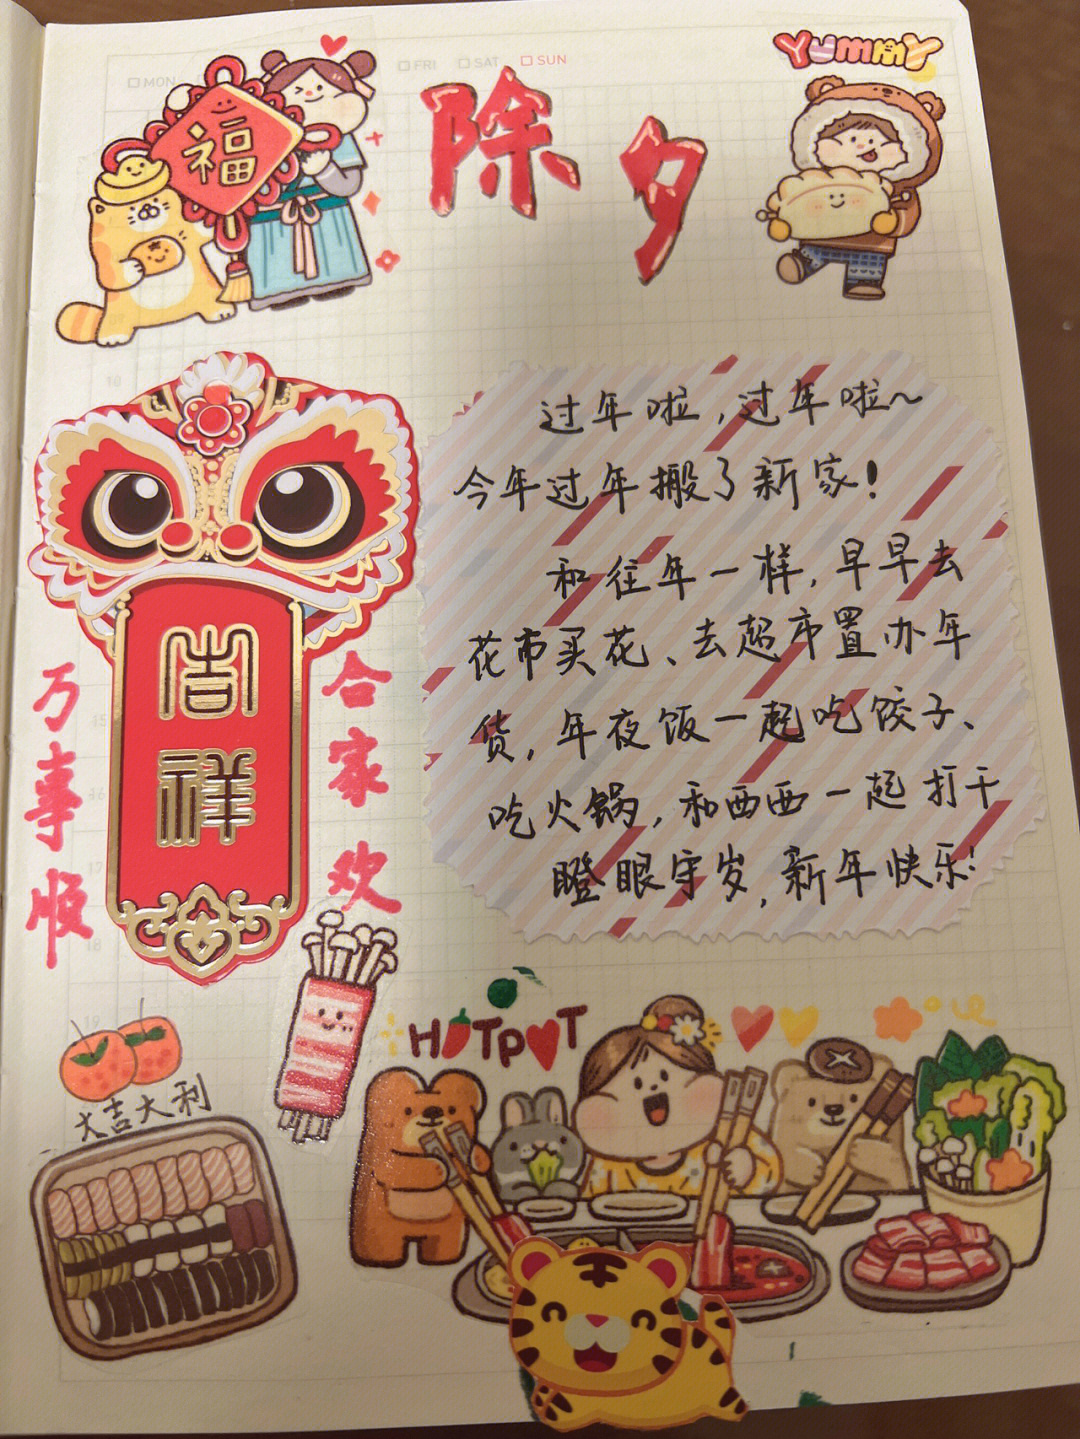 MON
FRI SAT SUN
YUMMY
福
除夕
过年啦，过年啦～
今年过年搬了新家！
和往年一样，早早去
花市买花、去超市置办年
货，年夜饭一起吃饺子、
吃火锅，和西西一起打干
瞪眼守岁，新年快乐！
吉祥
万事顺
合家欢
大吉大利
HOTPOT
10
15
16
17
18
19